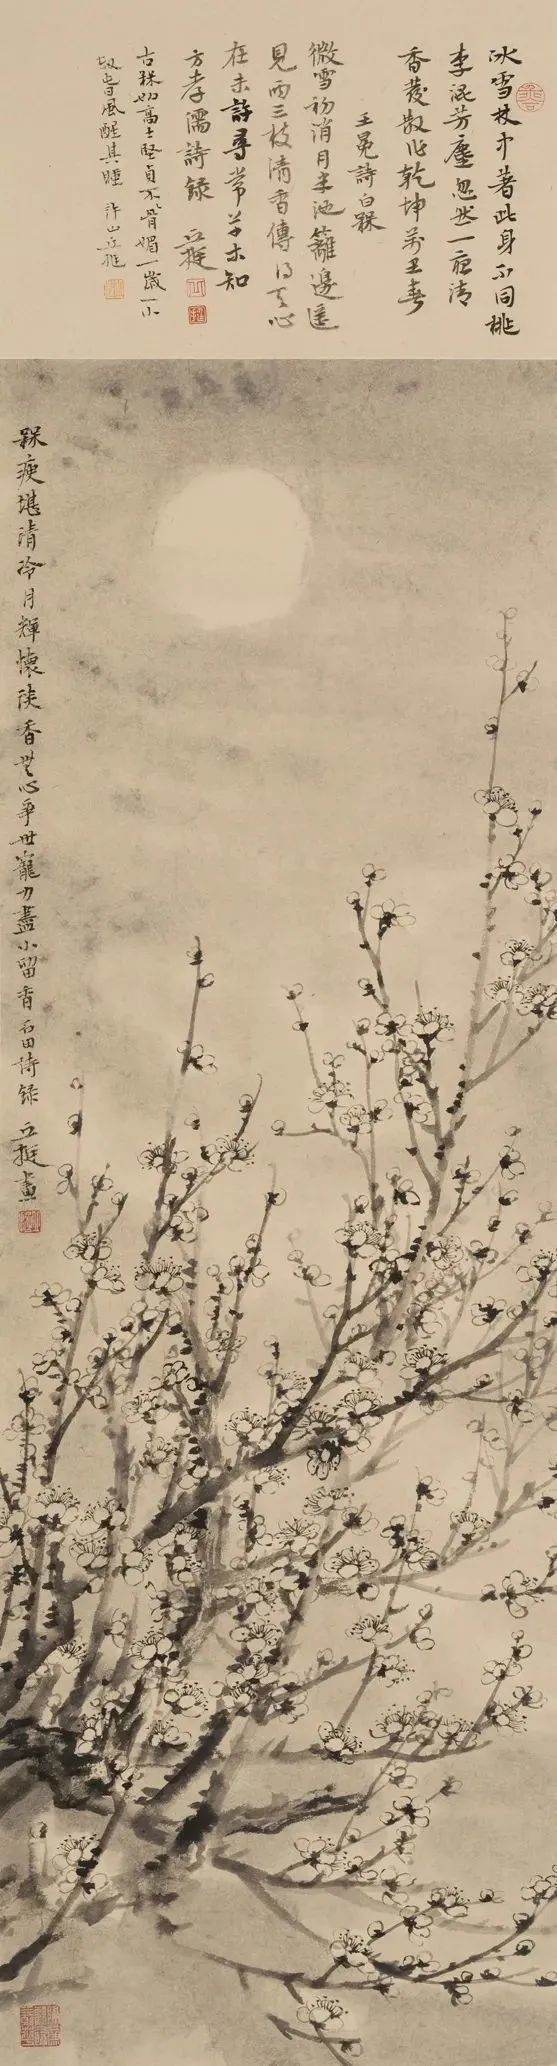 冰雪林中著此身不同桃
李混芳塵忽然一夜清
香發散作乾坤萬里春
王冕詩白槑
微雪初消月半池籬邊遙
見兩三枝清香傳得天心
在未許尋常草木知
方孝濡詩錄 立挺
古槑如高士堅貞不骨媚一歲一小
劫春風醒其睡 立挺
槑瘦堪清冷月輝懷淡香無心爭世寵力盡小留香 石田詩錄 立挺畫